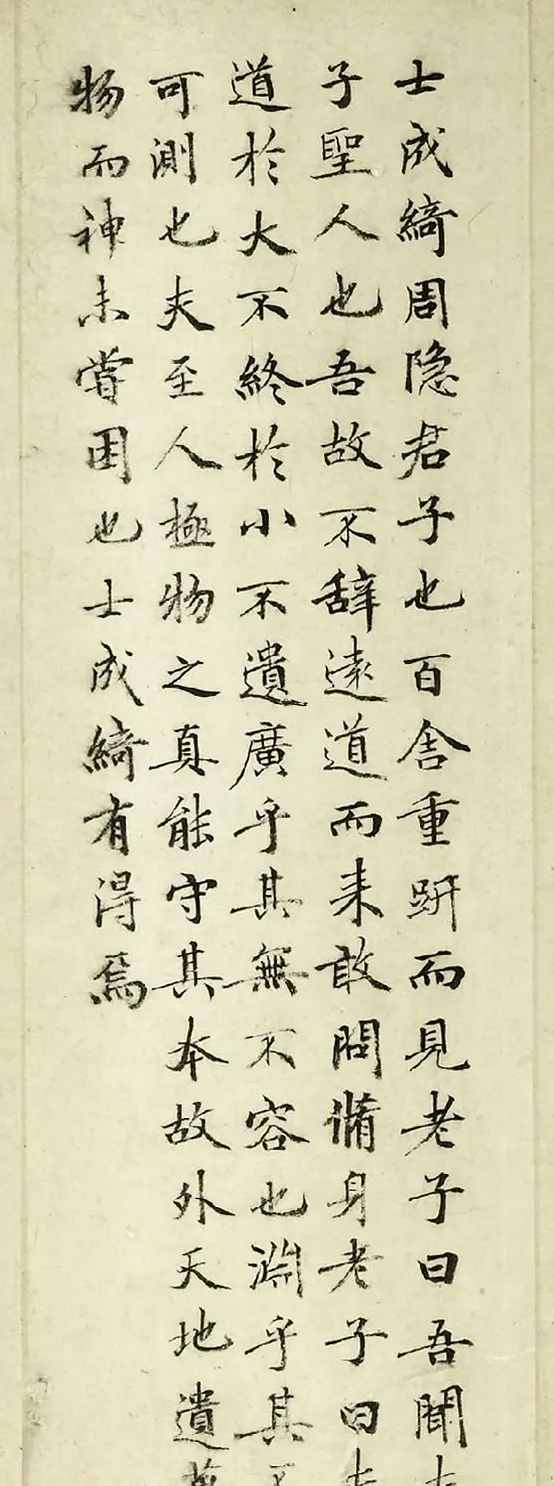 士成綺周隐君子也百舍重趼而見老子曰吾聞夫
子聖人也吾故不辭遠道而来敢問脩身老子曰夫
道於大不終於小不遺廣乎其無不容也淵乎其不
可測也夫至人極物之真能守其本故外天地遺萬
物而神未嘗困也士成綺有得焉